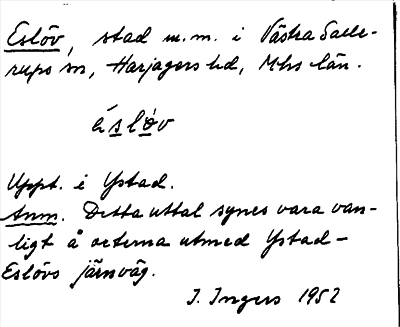 Eslöv, stad m.m. i Västra Salle-
rups sn, Harjagers hd, Mhs län.
èslö́v
Uppt. i Ystad.
Anm. Detta uttal synes vara van-
ligt å orterna utmed Ystad-
Eslövs järnväg.
I. Ingers 1952